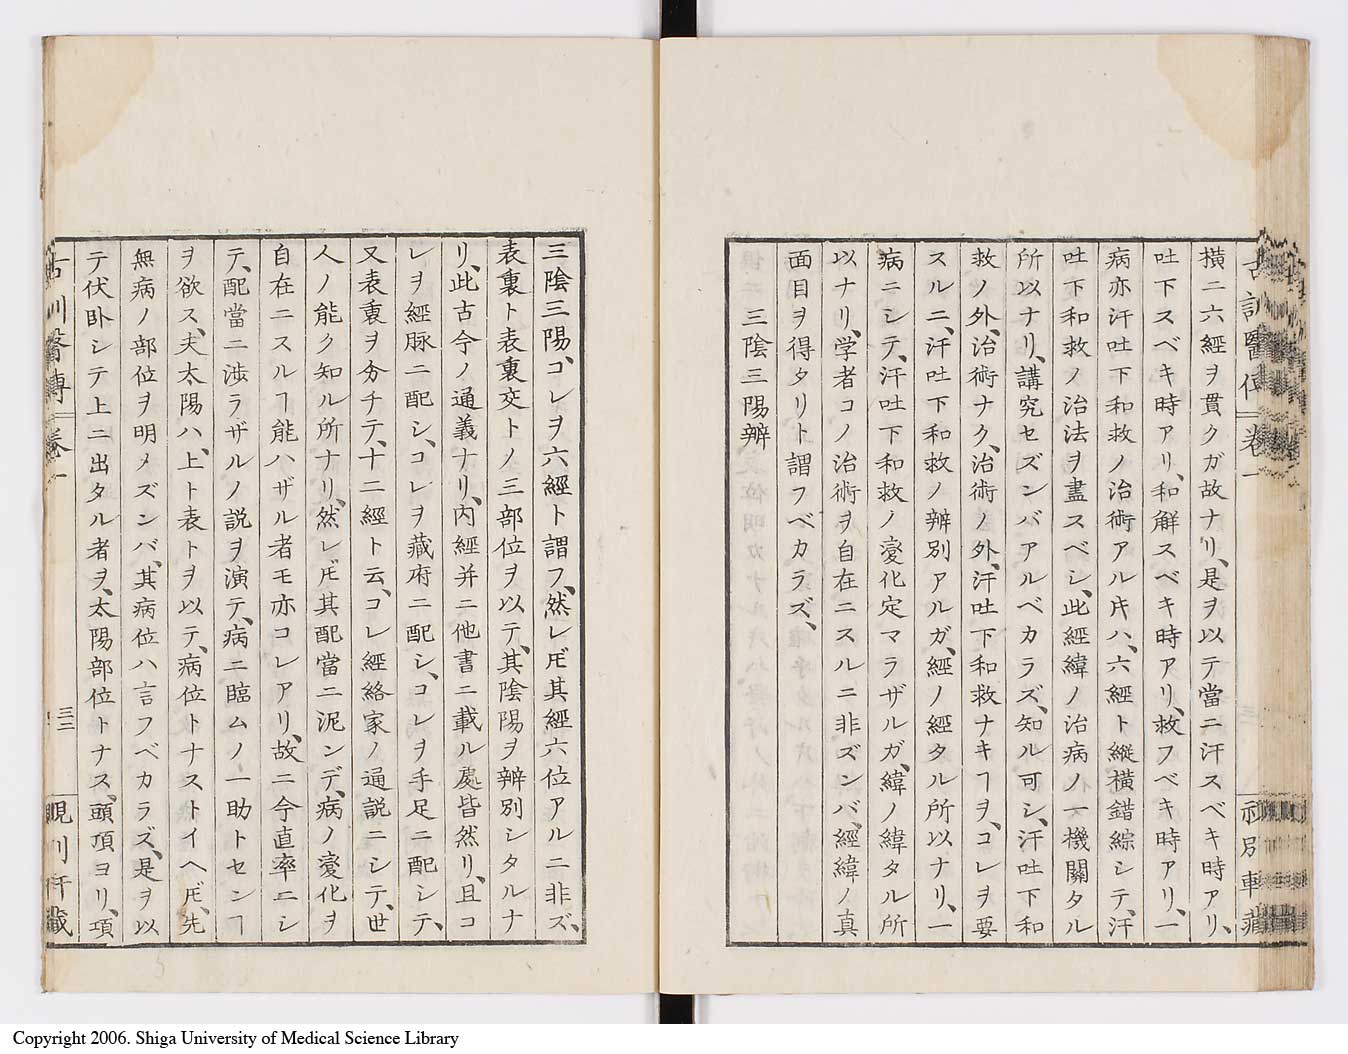 横ニ六經ヲ貫クガ故ナリ、是ヲ以テ當ニ汗スベキ時アリ、
吐下スベキ時アリ、和解スベキ時アリ、救フベキ時アリ、一
病亦汗吐下和救ノ治術アル㐧ハ、六經ト縱横錯綜シテ、汗
吐下和救ノ治法ヲ盡スベシ、此經緯ノ治病ノ一大機關タル
所以ナリ、講究セズンバアルベカラズ、知ル可シ、汗吐下和
救ノ外、治術ナク、治術ノ外、汗吐下和救ナキヿヲ、コレヲ要
スルニ、汗吐下和救ノ辨別アルガ、經ノ經タル所以ナリ、一
病ニシテ、汗吐下和救ノ變化定マラザルガ、緯ノ緯タル所
以ナリ、学者コノ治術ヲ自在ニスルニ非ズンバ、經緯ノ真
面目ヲ得タリト謂フベカラズ、
三陰三陽辨
三陰三陽、コレヲ六經ト謂フ、然レ𪜈其經六位アルニ非ズ、
表裏ト表裏交トノ三部位ヲ以テ、其陰陽ヲ辨別シタルナ
リ、此古今ノ通義ナリ、内經并ニ他書ニ載ル處皆然リ、且コ
レヲ經脉ニ配シ、コレヲ藏府ニ配シ、コレヲ手足ニ配シテ、
又表裏ヲ分チテ、十二經ト云、コレ經絡家ノ通説ニシテ、世
人ノ能ク知ル所ナリ、然レ𪜈其配當ニ泥ンデ、病ノ變化ヲ
自在ニスルヿ能ハザル者モ亦コレアリ、故ニ今直率ニシ
テ、配當ニ渉ラザルノ説ヲ演テ、病ニ臨ムノ一助トセンヿ
ヲ欲ス、夫太陽ハ、上ト表トヲ以テ、病位トナストイヘ𪜈、先
無病ノ部位ヲ明メズンバ、其病位ハ言フベカラズ、是ヲ以
テ伏卧シテ上ニ出タル者ヲ、太陽部位トナス、頭頂ヨリ、項
古訓醫傳 卷一
Copyright 2006. Shiga University of Medical Science Library